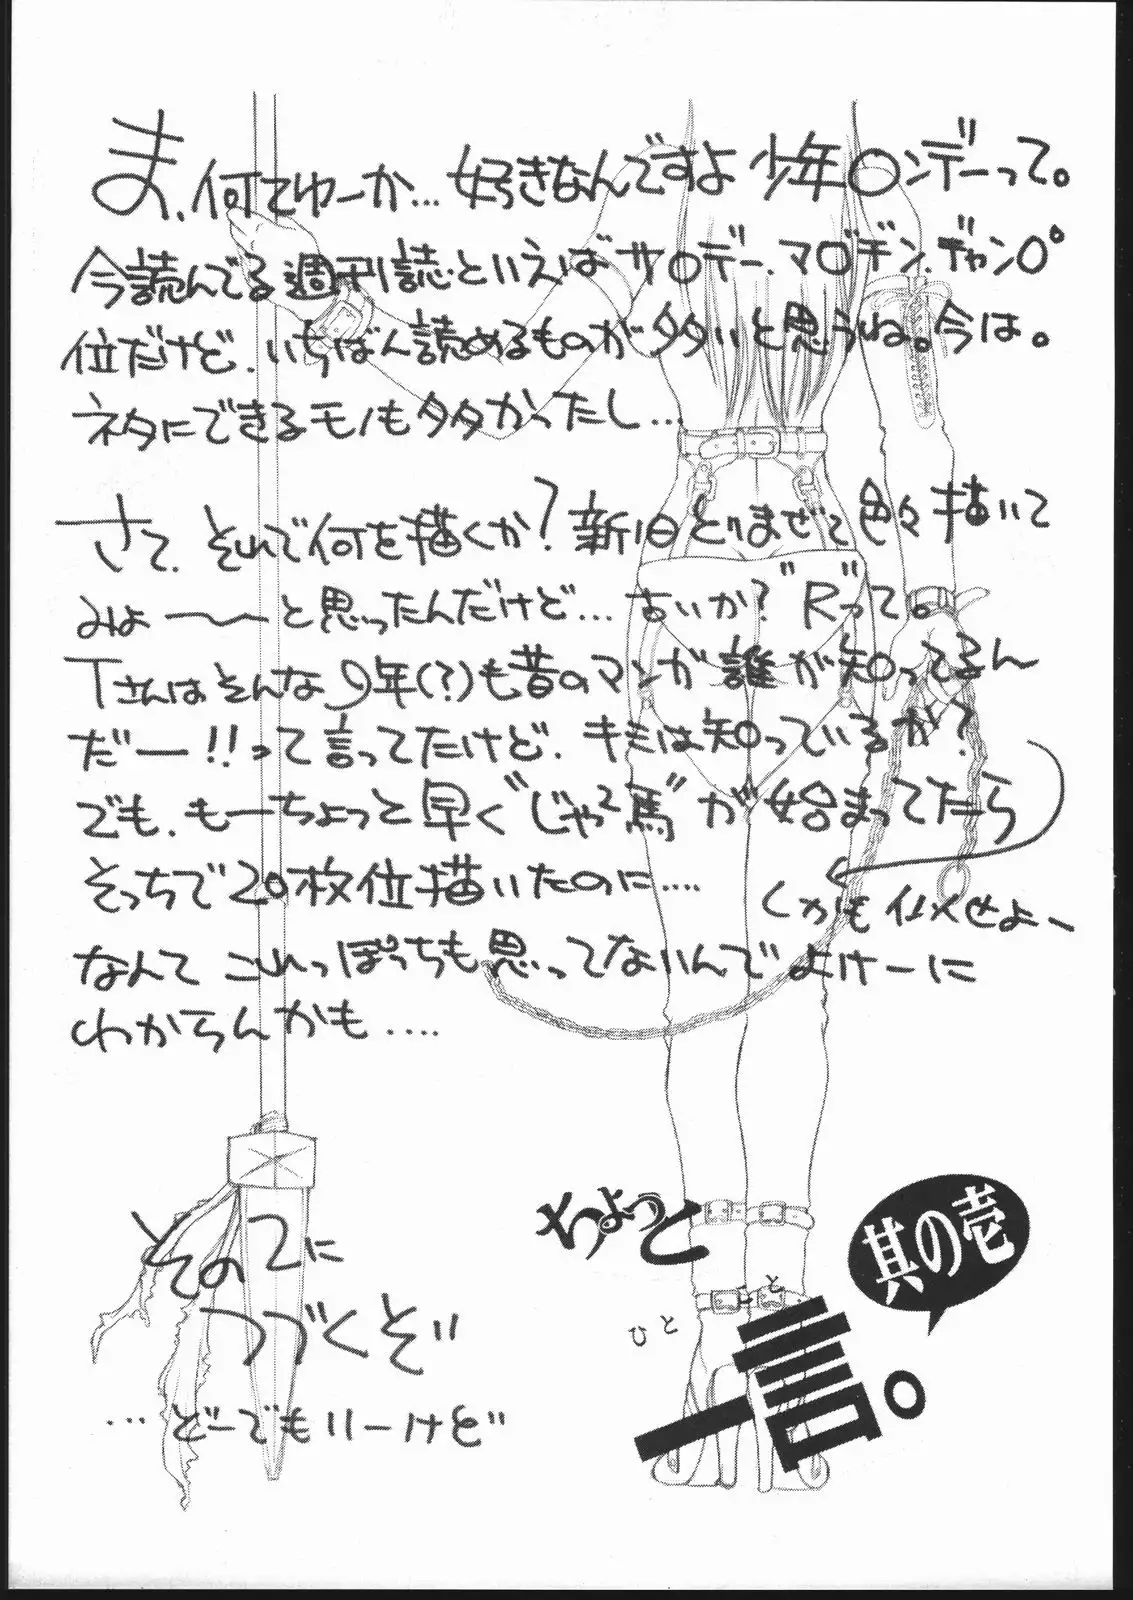 ま、何てゆーか…好きなんですよ少年〇ンデーって。
今読んでる週刊誌といえばサ〇デー、マ〇ヂン、ヂャン〇゜
位だけど、いちばん読めるものが多いと思うね。今は。
ネタにできるモノも多かったし…
さて、それで何を描くか?新旧とりまぜて色々描いて
みょ〜〜と思ったんだけど…古いか?"R"って。
Tさんはそんな9年(?)も昔のマンガ誰が知ってるん
だー!!って言ってたけど、キミは知っているか?
でも、もーちょっと早く"じゃ2馬"が始まってたら
そっちで20枚位描いたのに…
しかも 似せよー
なんてこれっぽっちも思ってないんでよけーに
わからんかも….
その2に
つづくぞ
…どーでもいーけど
ちょっと
ひとこと
一言。
其の壱